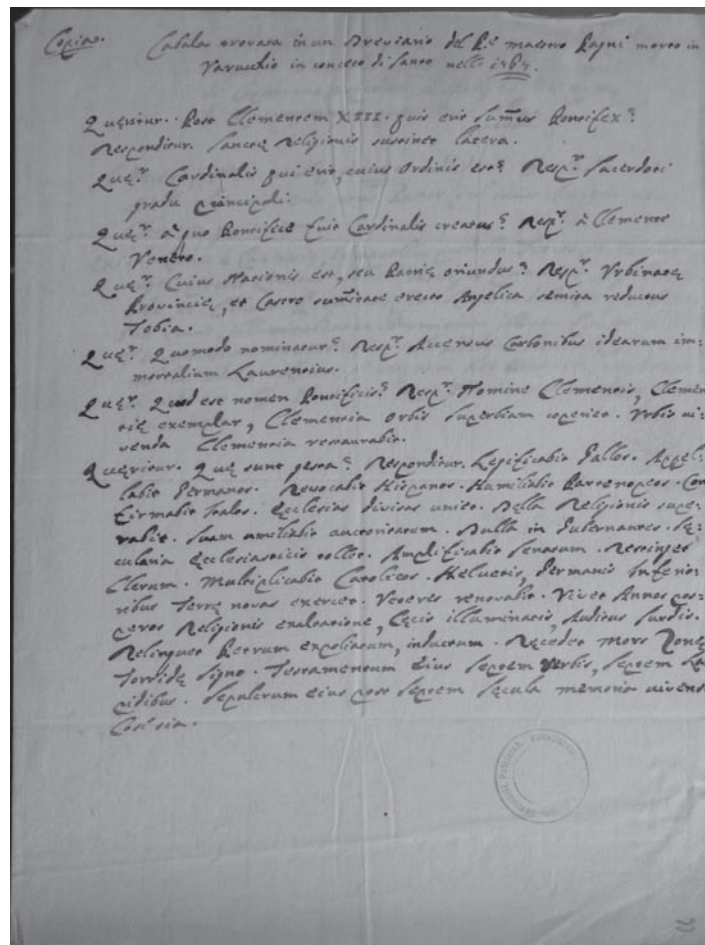 Copia. Cabala trovata in un Breviario del P.e maestro Pagni morto in
concetto di santo nell 1767.
Quęritur. Post Clementem XIII. quis erit sum̃us Pontifex?
Responditur. Sanctę Religionis sustinet latera.
Quęr. Cardinalis qui erit, cuius Ordinis est? Resp.r Sacerdoti
gradu principali.
Quęr. a quo Pontifice fuit Cardinalis creatus? Resp.r à Clemente
Veneto.
Quęr. Cuius Nationis est, seu Patrię oriundus? Resp.r Vrbinatę
Provincię, et Castro sum̃itate erecto Angelica semita reductus
Tobia.
Quęr. Quomodo nominatur? Resp.r Accensus Carbonibus idearum im=
mortalium Laurentius.
Quęr. Quod est nomen Pontificis? Resp.r Nomine Clementis, Clemen
tię exemplar, Clementia Orbis superbiam Vrbis
Clementia restaurabit.
Quęritur. Quę sunt gesta? Responditur. Gallos. Appel=
labit Germanos. Revocabit Hispanos. Humiliabit Partenopeos. Con
firmabit Italos. Ecclesias divisas uniet. Bella Religionis supe=
rabit. Suam humiliabit auctoritatem. Bulla in Gubernantes. Sę=
cularia Ecclesiasticis tollet. Amplificabit Senatum. Restinget
Clerum. Multiplicabit Catolicos. Helvetis, Germanis Inferio=
ribus Terrę novas exercet. Veteres renovabit. Vivet Annos pros=
peros Religionis exaltatione, Cęcis illuminatis, Auditus surdis.
Relinquet Petrum expoliatum, indutum. Recedet mors Zonę
Torridę signo. Testamentum eius septem verbis, septem La
pidibus. Sepulcrum eius post septem sęcula memoria